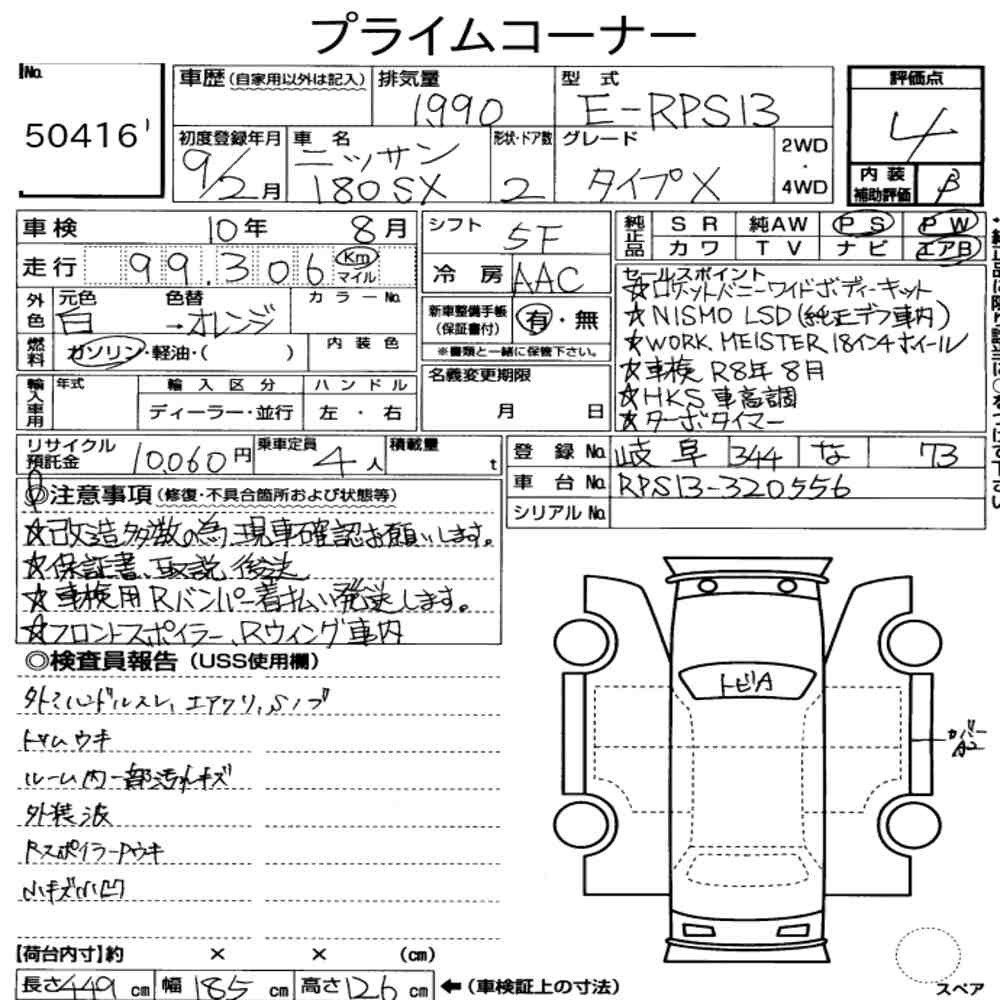 プライムコーナー
No. 50416
車歴(自家用以外は記入)
排気量 1,990
型式 E-RPS13
評価点 4
初度登録年月 9/2月
車名 ニッサン 180SX
形状・ドア数 2
グレード タイプX
2WD・4WD
内装補助評価 β
車検 10年 8月
シフト 5F
純正品 SR 純AW PS PW
カワ TV ナビ エアB
走行 99,306 Km マイル
冷房 AAC
外色 元色 白 色替 →オレンジ
カラーNo.
新車整備手帳(保証書付) 有・無
※書類と一緒に保管下さい。
燃料 ガソリン・軽油・( )
内装色
セールスポイント
☆ロケットバニーワイドボディーキット
☆NISMO LSD(純正デフ車内)
☆WORK MEISTER 18インチホイール
☆車検 R8年 8月
☆HKS 車高調
☆ターボタイマー
輸入車用 年式
輸入区分 ディーラー・並行
ハンドル 左・右
名義変更期限 月 日
リサイクル預託金 10,060円
乗車定員 4人
積載量 t
登録No. 岐阜 344 な 73
車台No. RPS13-320556
シリアルNo.
◎注意事項(修復・不具合箇所および状態等)
☆改造多数の為、現車確認お願いします。
☆保証書、取説 後送
☆車検用Rバンパー着払い発送します。
☆フロントスポイラー、Rウィング車内
◎検査員報告(USS使用欄)
ハンドルスレ、エアクリ、Sノブ
トリムウキ
ルーム内一部汚れキズ
外装波
RスポイラーPウキ
小キズ小凹
トビA
カバー A2
【荷台内寸】約 × × (cm)
長さ449cm 幅185cm 高さ126cm ←(車検証上の寸法)
スペア